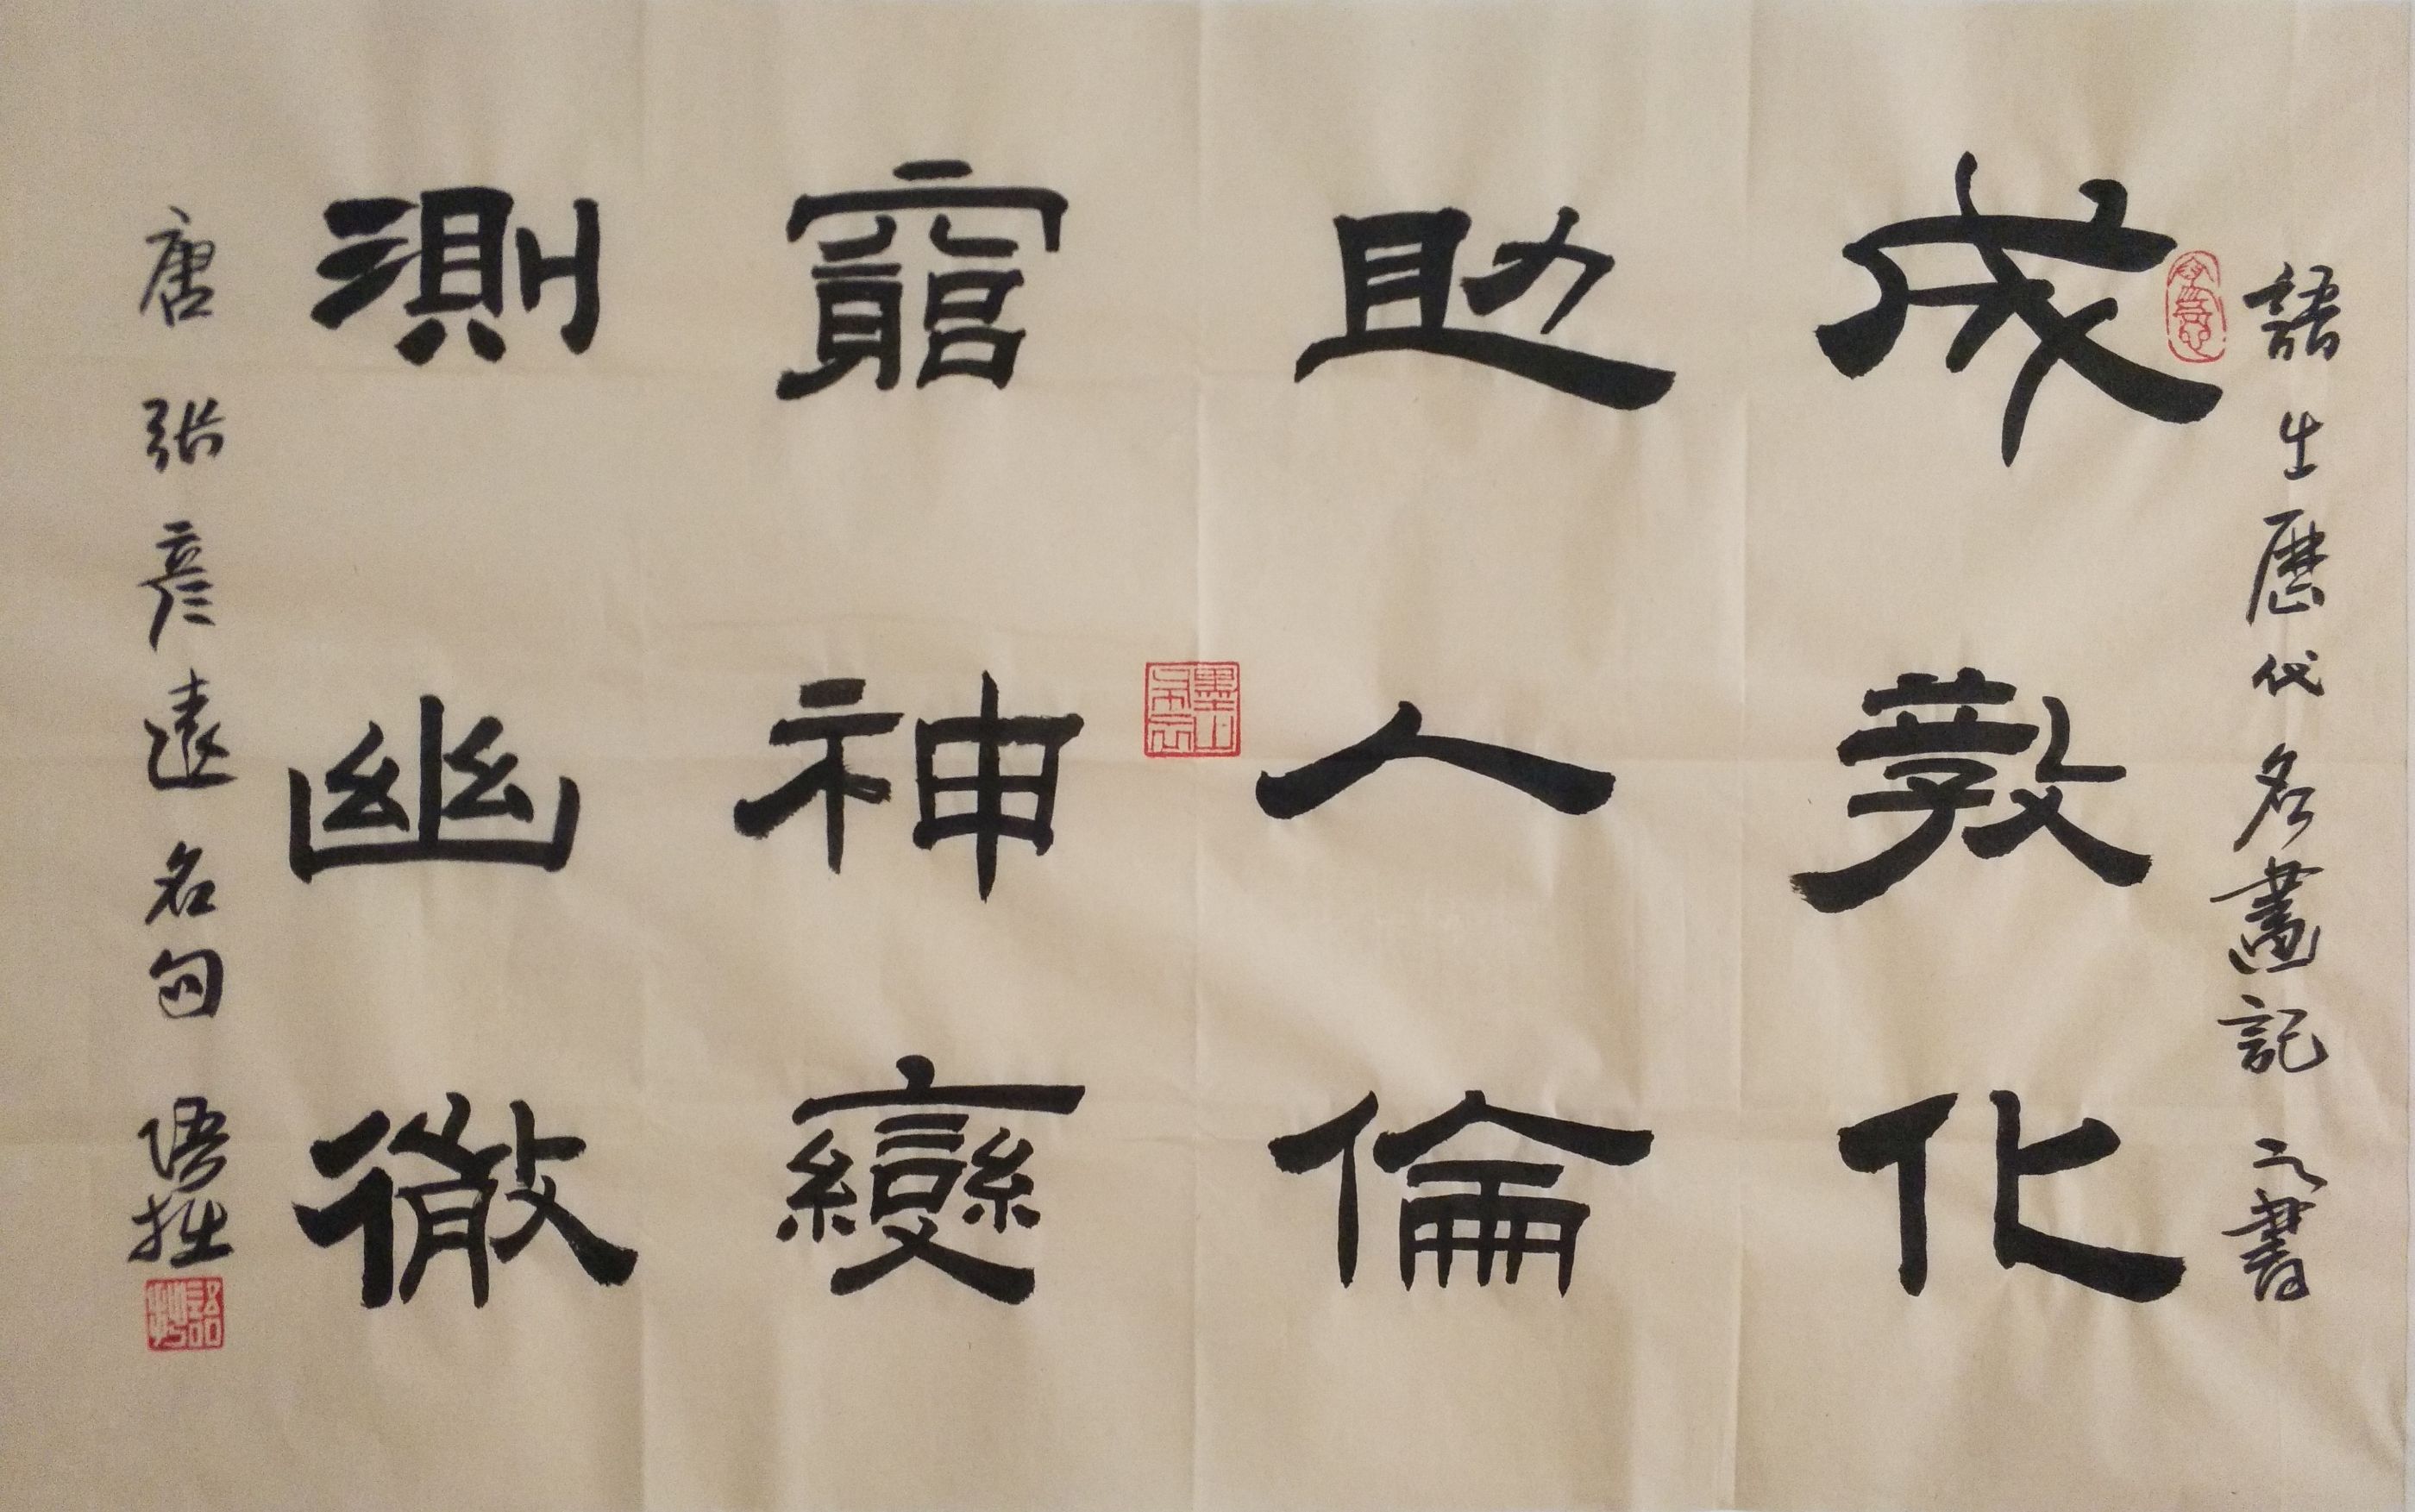 語出歷代名畫記之書
成教化
助人倫
窮神變
測幽微
唐張彥遠名句 语拙